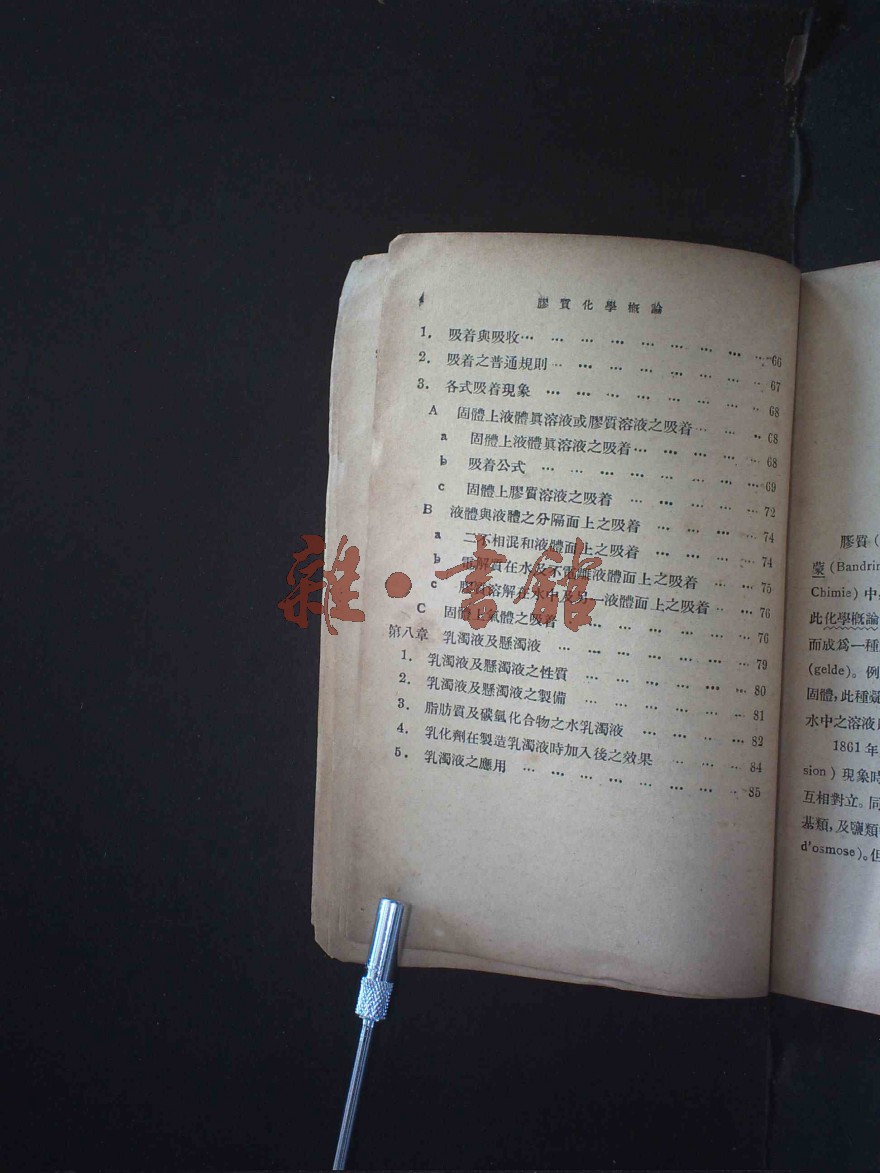 膠質化學概論
1. 吸着與吸收… … … … … … … … …66
2. 吸着之普通規則… … … … … … … … 67
3. 各式吸着現象 … … … … … … … … 68
A 固體上液體眞溶液或膠質溶液之吸着… … … 68
a 固體上液體眞溶液之吸着… … … … … 68
b 吸着公式 … … … … … … … …69
c 固體上膠質溶液之吸着 … … … … … 72
B 液體與液體之分隔面上之吸着 … … … … 74
a 二不相混和液體面上之吸着 … … … … 74
b 電解質在水及不電離液體面上之吸着 … … 75
c 膠質溶解在水中及另一液體面上之吸着… … 76
C 固體上氣體之吸着 … … … … … … 76
第八章 乳濁液及懸濁液 … … … … … … … 79
1. 乳濁液及懸濁液之性質 … … … … … … 80
2. 乳濁液及懸濁液之製備 … … … … … … 81
3. 脂肪質及碳氫化合物之水乳濁液 … … … … 82
4. 乳化劑在製造乳濁液時加入後之效果 … … … 84
5. 乳濁液之應用 … … … … … … … …85
膠質(
蒙 (Bandrim
Chimie) 中,
此化學概論
而成爲一種
(gelde)。例
固體,此種凝
水中之溶液
1861年
sion) 現象時
互相對立。同
基類,及鹽類
d'osmose)。但
雜·書館